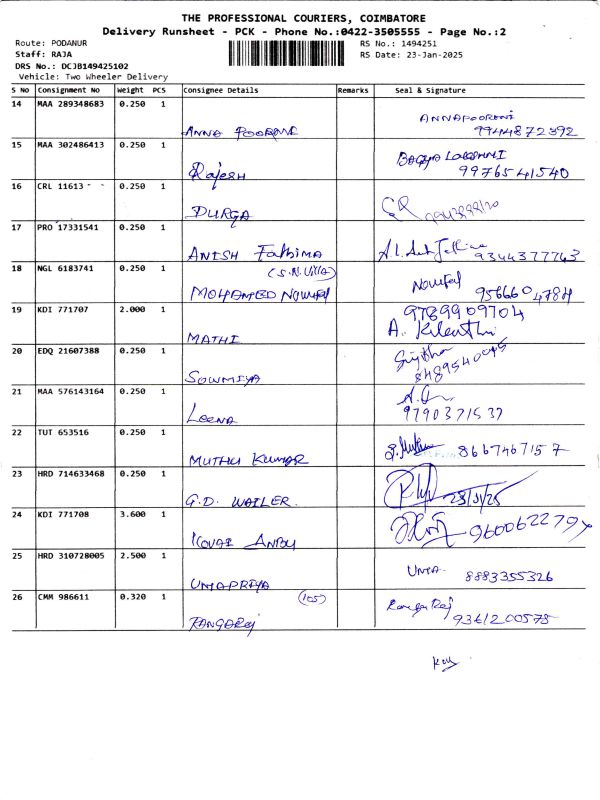 THE PROFESSIONAL COURIERS, COIMBATORE
Delivery Runsheet - PCK - Phone No.:0422-3505555 - Page No.:2
Route: PODANUR
RS No.: 1494251
Staff: RAJA
RS Date: 23-Jan-2025
DRS No.: DCJB149425102
Vehicle: Two Wheeler Delivery
S No Consignment No Weight PCS Consignee Details Remarks Seal & Signature
14 MAA 289348683 0.250 1
ANNA POORANI ANNAPOORANI
9944872392
15 MAA 302486413 0.250 1
Rajesh BAGYA LAKSHMI
9976541540
16 CRL 11613 0.250 1
DURGA
17 PRO 17331541 0.250 1
ANISH Fathima 9344377743
18 NGL 6183741 0.250 1
(S.N. Villa)
MOHAMED Nowfal Nowfal 9566604784
19 KDI 771707 2.000 1
9789909704
MATHI A.
20 EDQ 21607388 0.250 1
SOWMIYA 8489540045
21 MAA 576143164 0.250 1
Leena 9790371537
22 TUT 653516 0.250 1
MUTHU KUMAR 8667467157
23 HRD 714633468 0.250 1
G.D. WAILER 23/1/25
24 KDI 771708 3.600 1
KOVAI ANBU
25 HRD 310728005 2.500 1
UMAPRIYA UMA. 8883355326
26 CMM 986611 0.320 1
(105)
RANGARAJ RangaRaj
9361200578